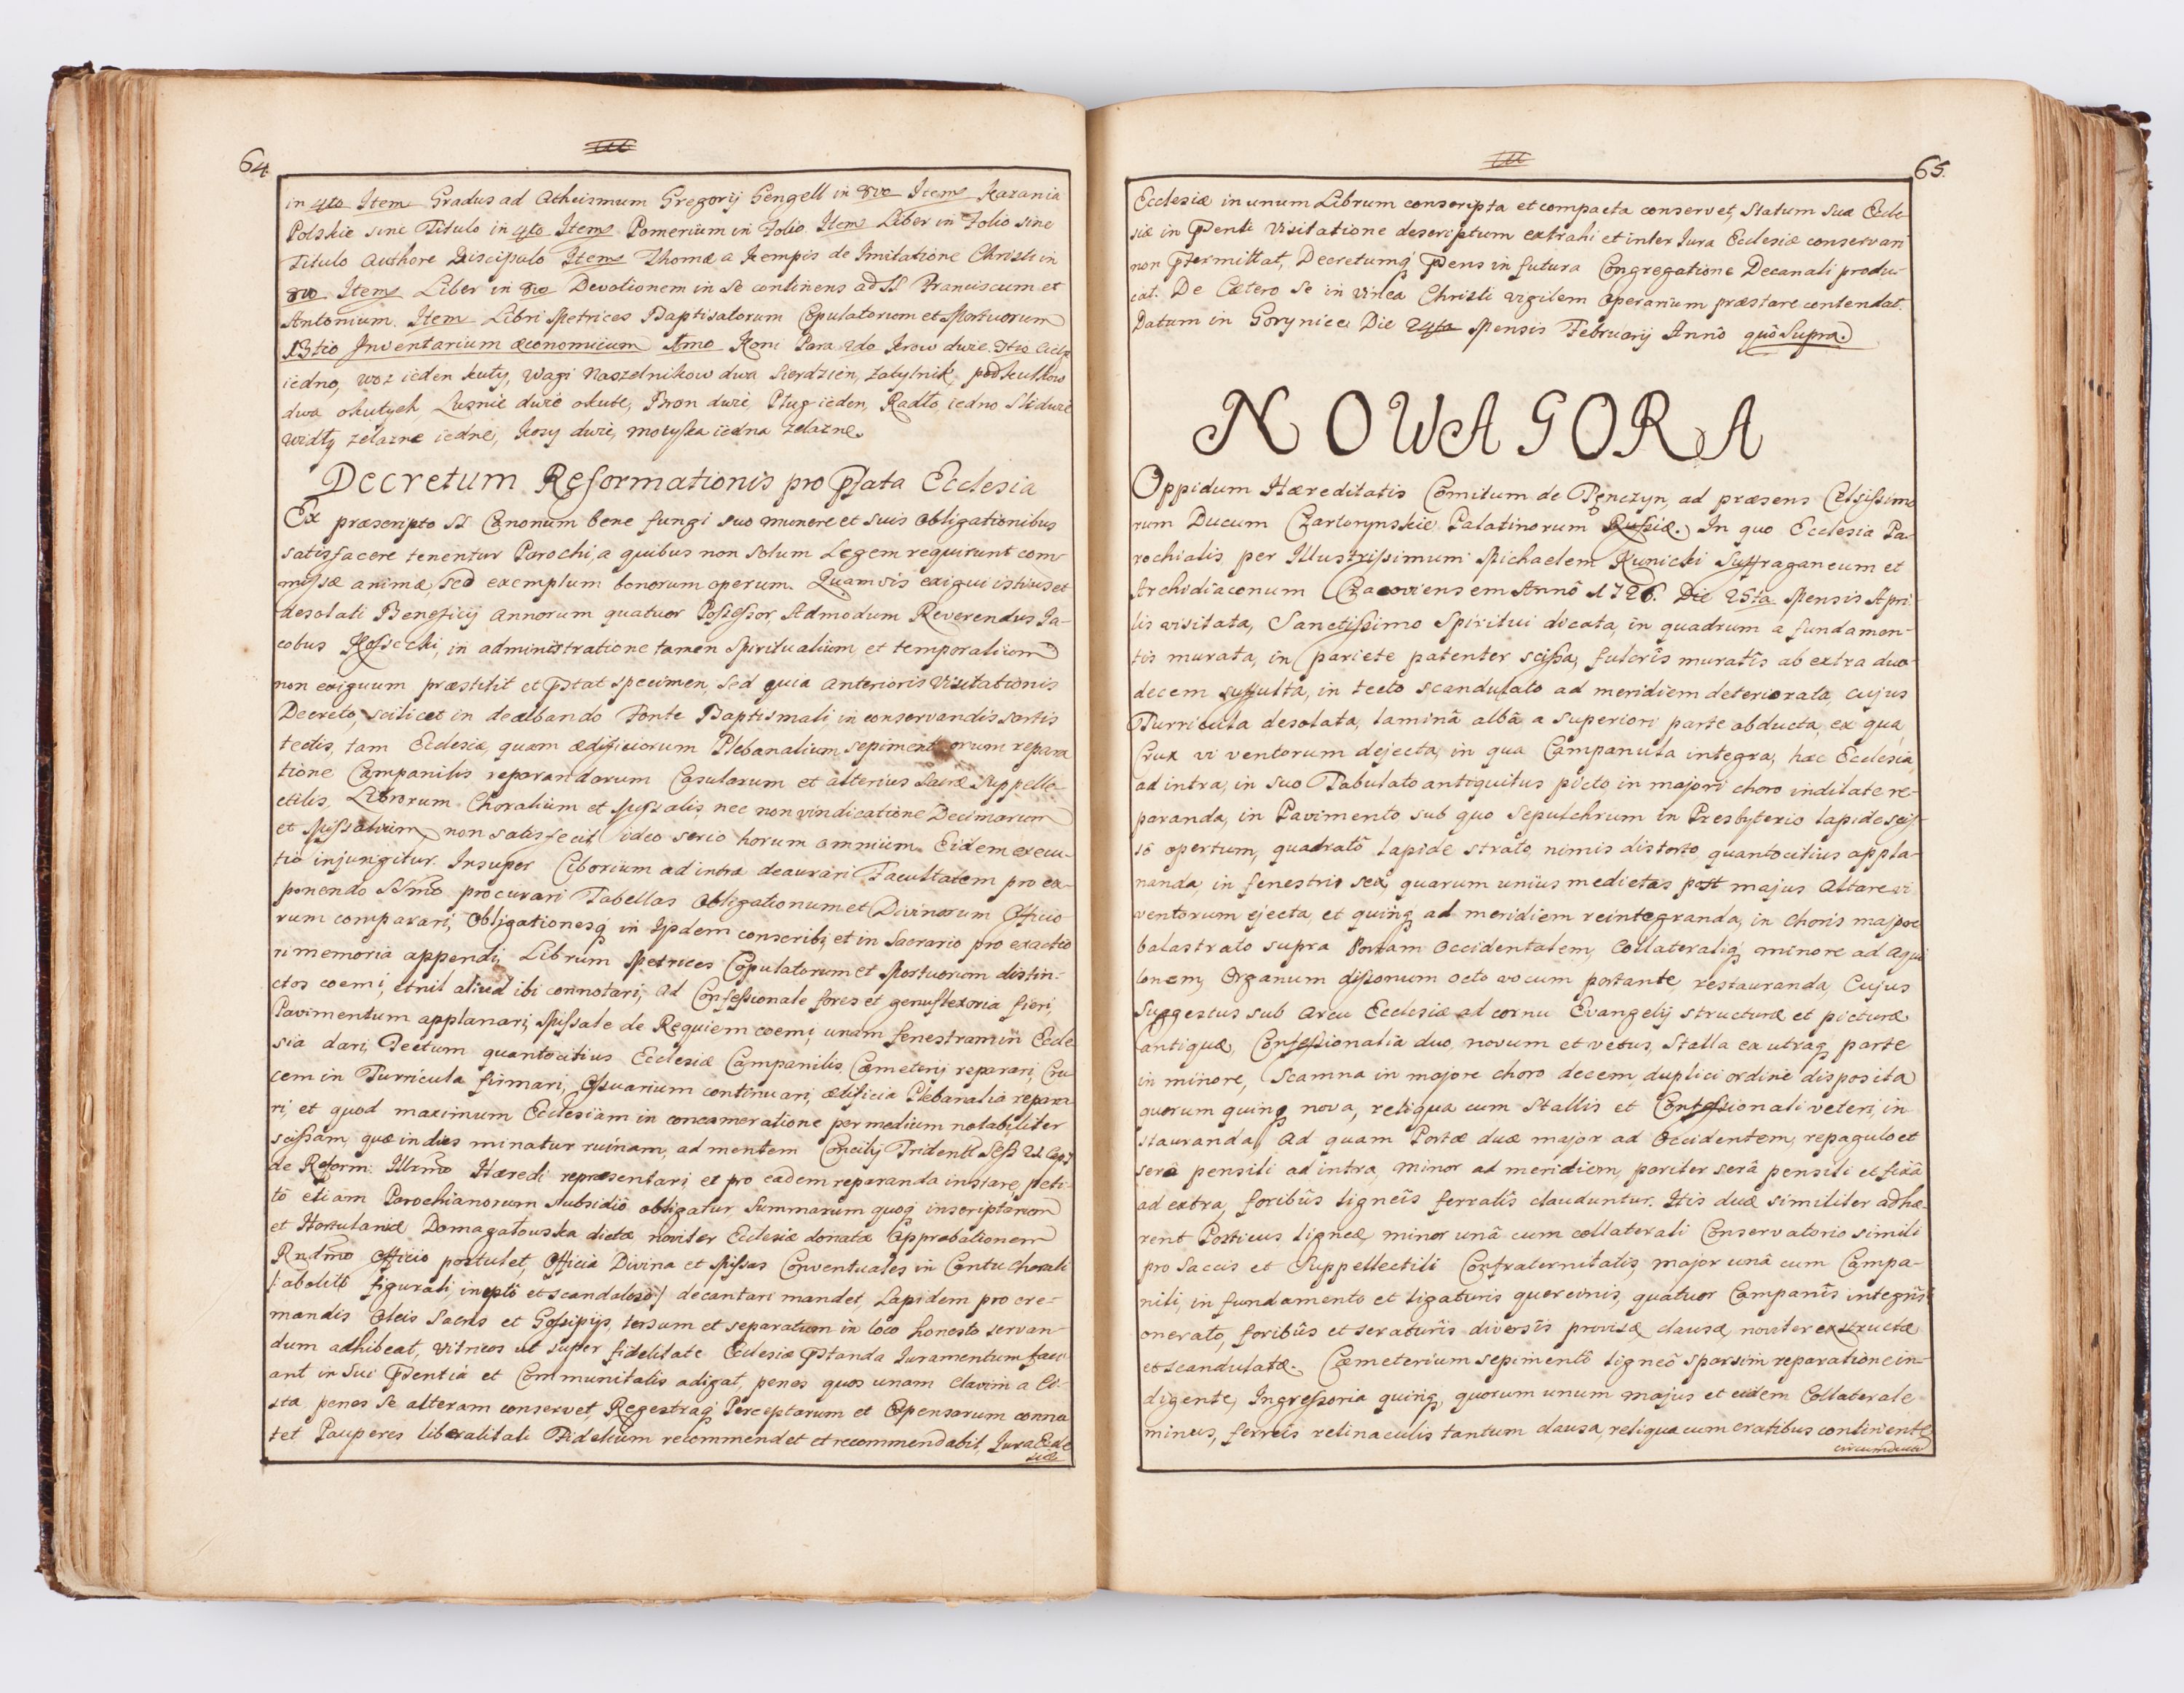 64
in 4to Item Gradus ad Atheismum Gregorij Gengell in 8vo Item Kazania
Polskie sine Titulo in 4to Item Pomerium in Folio Item Liber in Folio sine
Titulo Authore Discipulo Item Thomæ a Kempis de Imitatione Christi in
8vo Item Liber in 8vo Devotionem in se continens ad SS Franciscum et
Antonium. Item Libri Metrices Baptisatorum Copulatorum et Mortuorum
13tio Inventarium œconomicum 1mo Koni Para 2do Krow dwie 3tio Cielę
iedno, woz ieden kuty, wagi Naszelnikow dwa Sierdzien, zatylnik,
dwa okutych, Lusnie dwie okute, Bron dwie, Pług ieden, Radło iedno
widły zelazne iedne, kosy dwie, motyka iedna zelazne.
Decretum Reformationis pro Pfata Ecclesia
Ex præscripto SS Canonum bene fungi suo munere et suis obligationibus
satisfacere tenentur Parochi, a quibus non solum Legem requirunt com-
missæ animæ, sed exemplum bonorum operum. Quamvis exigui istius et
desolati Beneficij annorum quatuor Possessor, Admodum Reverendus Ja-
cobus Kossecki, in administratione tamen Spiritualium et temporalium
non exiguum præstitit et Pstat specimen, sed quia anterioris Visitationis
Decreto, scilicet in dealbando Fonte Baptismali in conservandis sartis
tectis, tam Ecclesiæ, quam ædificiorum Plebanalium, sepimentorum repara
tione Campanilis reparandarum Casularum et alterius Sacræ Suppelle-
ctilis, Librorum Choralium et Missalis, nec non vindicatione Decimarum
et Missalium non satisfecit, ideo serio horum omnium Eidem execu-
tio injungitur. Insuper Ciborium ad intra deaurari Facultatem pro ex-
ponendo SSmo procurari Tabellas Obligationum et Divinorum Officio
rum comparari, Obligationesq in Ipdem conscribi, et in Sacrario pro exactio
ri memoria appendi, Librum Metrices Copulatorum et Mortuorum distin-
ctos coemi, et nil aliud ibi connotari, ad Confessionale fores et genuflexoria fieri,
Pavimentum applanari, Missale de Requiem coemi, unam fenestram in Eccle
sia dari, Tectum quantocitius Ecclesiæ Campanilis, Cæmeterij reparari, Cru
cem in Turricula firmari, Ossuarium continuari, ædificia Plebanalia repara
ri, et quod maximum Ecclesiam in concameratione per medium notabiliter
scissam, quæ in dies minatur ruinam, ad mentem Concilij Tridenti Sess 21 Cap 7
de Reform: Illrmo Hæredi repræsentari, et pro eadem reparanda instare, peti-
tô etiam Parochianorum subsidiô obligatur, Summarum quoq inscriptarum
et Hortulaniæ Domagałowska dictæ noviter Ecclesiæ donatæ Approbationem
Rndmo Officio postulet, Officia Divina et Missas Conventuales in Cantu Chorali
/:abolitô figurali, ineptô et scandalosô:/ decantari mandet, Lapidem pro cre-
mandis Oleis Sacris et Gossipijs, tersum et separatum in loco honesto servan-
dum adhibeat, Vitricos ut super fidelitate Ecclesiæ Pstanda Juramentum faci-
ant in Sui Psentia et Communitatis adigat, penes quos unam Clavim a Ci-
sta, penes se alteram conservet, Regestraq Perceptarum et Expensarum conno
tet Pauperes liberalitati Fidelium recommendet et recommendabit, Jura Eccle
siæ
65.
Ecclesiæ in unum Librum conscripta et compacta conservet, Statum suæ Eccle
siæ in Psenti Visitatione descriptum extrahi et inter Jura Ecclesiæ conservari
non Ptermittat, Decretumq Psens in futura Congregatione Decanali produ-
cat. De Cætero se in Vinea Christi vigilem Operarium præstare contendat.
Datum in Gorynice Die 24ta Mensis Februarij Annô quô Supra.
NOWA GORA
Oppidum Hæreditatis Comitum de Tenczyn, ad præsens Celsissimo
rum Ducum Czartorynskie Palatinorum Russiæ. In quo Ecclesia Pa-
rochialis per Illustrissimum Michaelem Kunicki Suffraganeum et
Archidiaconum Cracoviensem Annô 1726. Die 25ta Mensis Apri-
lis visitata, Sanctissimo Spiritui dicata, in quadrum a fundamen-
tis murata, in pariete patenter scissa, fulcrîs muratîs ab extra duo-
decem suffulta, in tecto scandulato ad meridiem deteriorata, cujus
Turricula desolata, laminâ albâ a superiori parte abducta, ex qua
Crux vi ventorum dejecta, in qua Campanula integra, hæc Ecclesia
ad intra, in suo Tabulato antiquitus picto, in majori choro indilate re-
paranda, in Pavimento sub quo Sepulchrum in Presbyterio lapide scis-
sô opertum, quadratô lapide strato, nimis distorto quantocitius appla-
nanda, in fenestris sex, quarum unius medietas post majus Altare vi
ventorum ejecta, et quinq ad meridiem reintegranda, in Choris majore
balastrato supra Portam Occidentalem, Collateraliq minore ad Aqui
lonem, Organum dissonum octo vocum portante, restauranda, Cujus
Suggestus sub Arcu Ecclesiæ ad cornu Evangelij structuræ et picturæ
antiquæ, Confessionalia duo, novum et vetus, Stalla ex utraq parte
in minore, Scamna in majore choro decem, duplici ordine disposita
quorum quinq nova, reliqua cum Stallis et Confessionali veteri, in-
stauranda, Ad quam Portæ duæ major ad Occidentem, repagulo et
serâ pensili ad intra, minor ad meridiem, pariter serâ pensili et fixâ
ad extra, foribûs ligneîs ferratîs clauduntur. His duæ similiter adhæ-
rent Porticus ligneæ, minor unâ cum collaterali Conservatorio simili
pro Saccis et Suppellectili Confraternitatis, major unâ cum Campa-
nili, in fundamento et ligaturis quercinis, quatuor Campanîs integrîs
onerato, foribûs et seraturîs diversîs provisæ, clausæ, noviter exstructæ
et scandulatæ. Cæmeterium sepimentô ligneô sparsim reparatione in-
digente, Ingressoria quinq, quorum unum majus et eidem Collaterale
minus, ferreis retinaculis tantum clausa, reliqua cum cratibus continente
circumducta